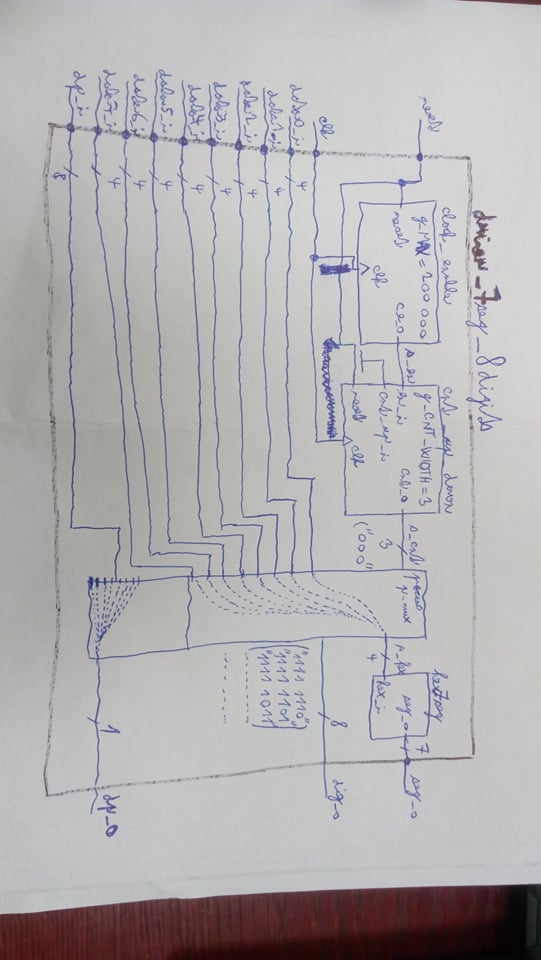 driver_7seg_8digits
clock_enable
g_MAX = 200 000
reset
ce_o
clk
s_en
cnt_up_down
g_CNT_WIDTH = 3
en_i
cnt_o
cnt_up_i
reset
clk
s_cnt
3
("000"
process
p_mux
s_hex
4
hex7seg
seg_o
hex_i
7
seg_o
8
dig_o
("1111 1110")
1111 1101
"1111 1011"
reset
clk
data0_i
4
data1_i
4
data2_i
4
data3_i
4
data4_i
4
data5_i
4
data6_i
4
data7_i
4
dp_i
8
1
dp_o